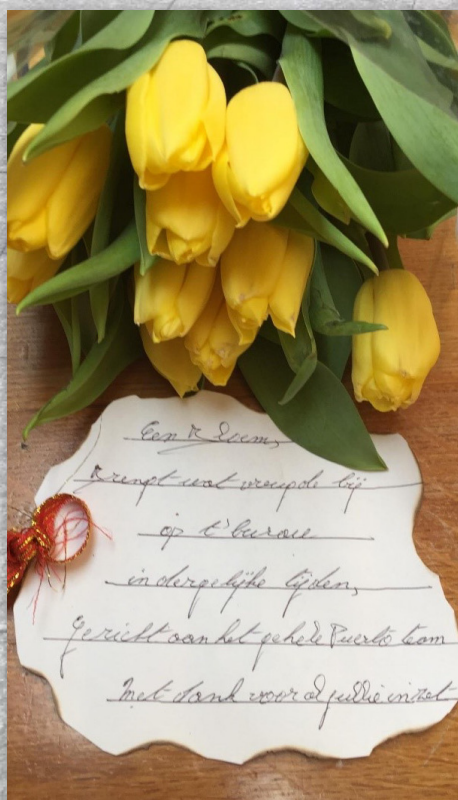 Een Bloem,
Brengt wat vreugde bij
op t' bureau
in dergelijke tijden,
Gericht aan het gehele Puerto team
Met dank voor al jullie inzet